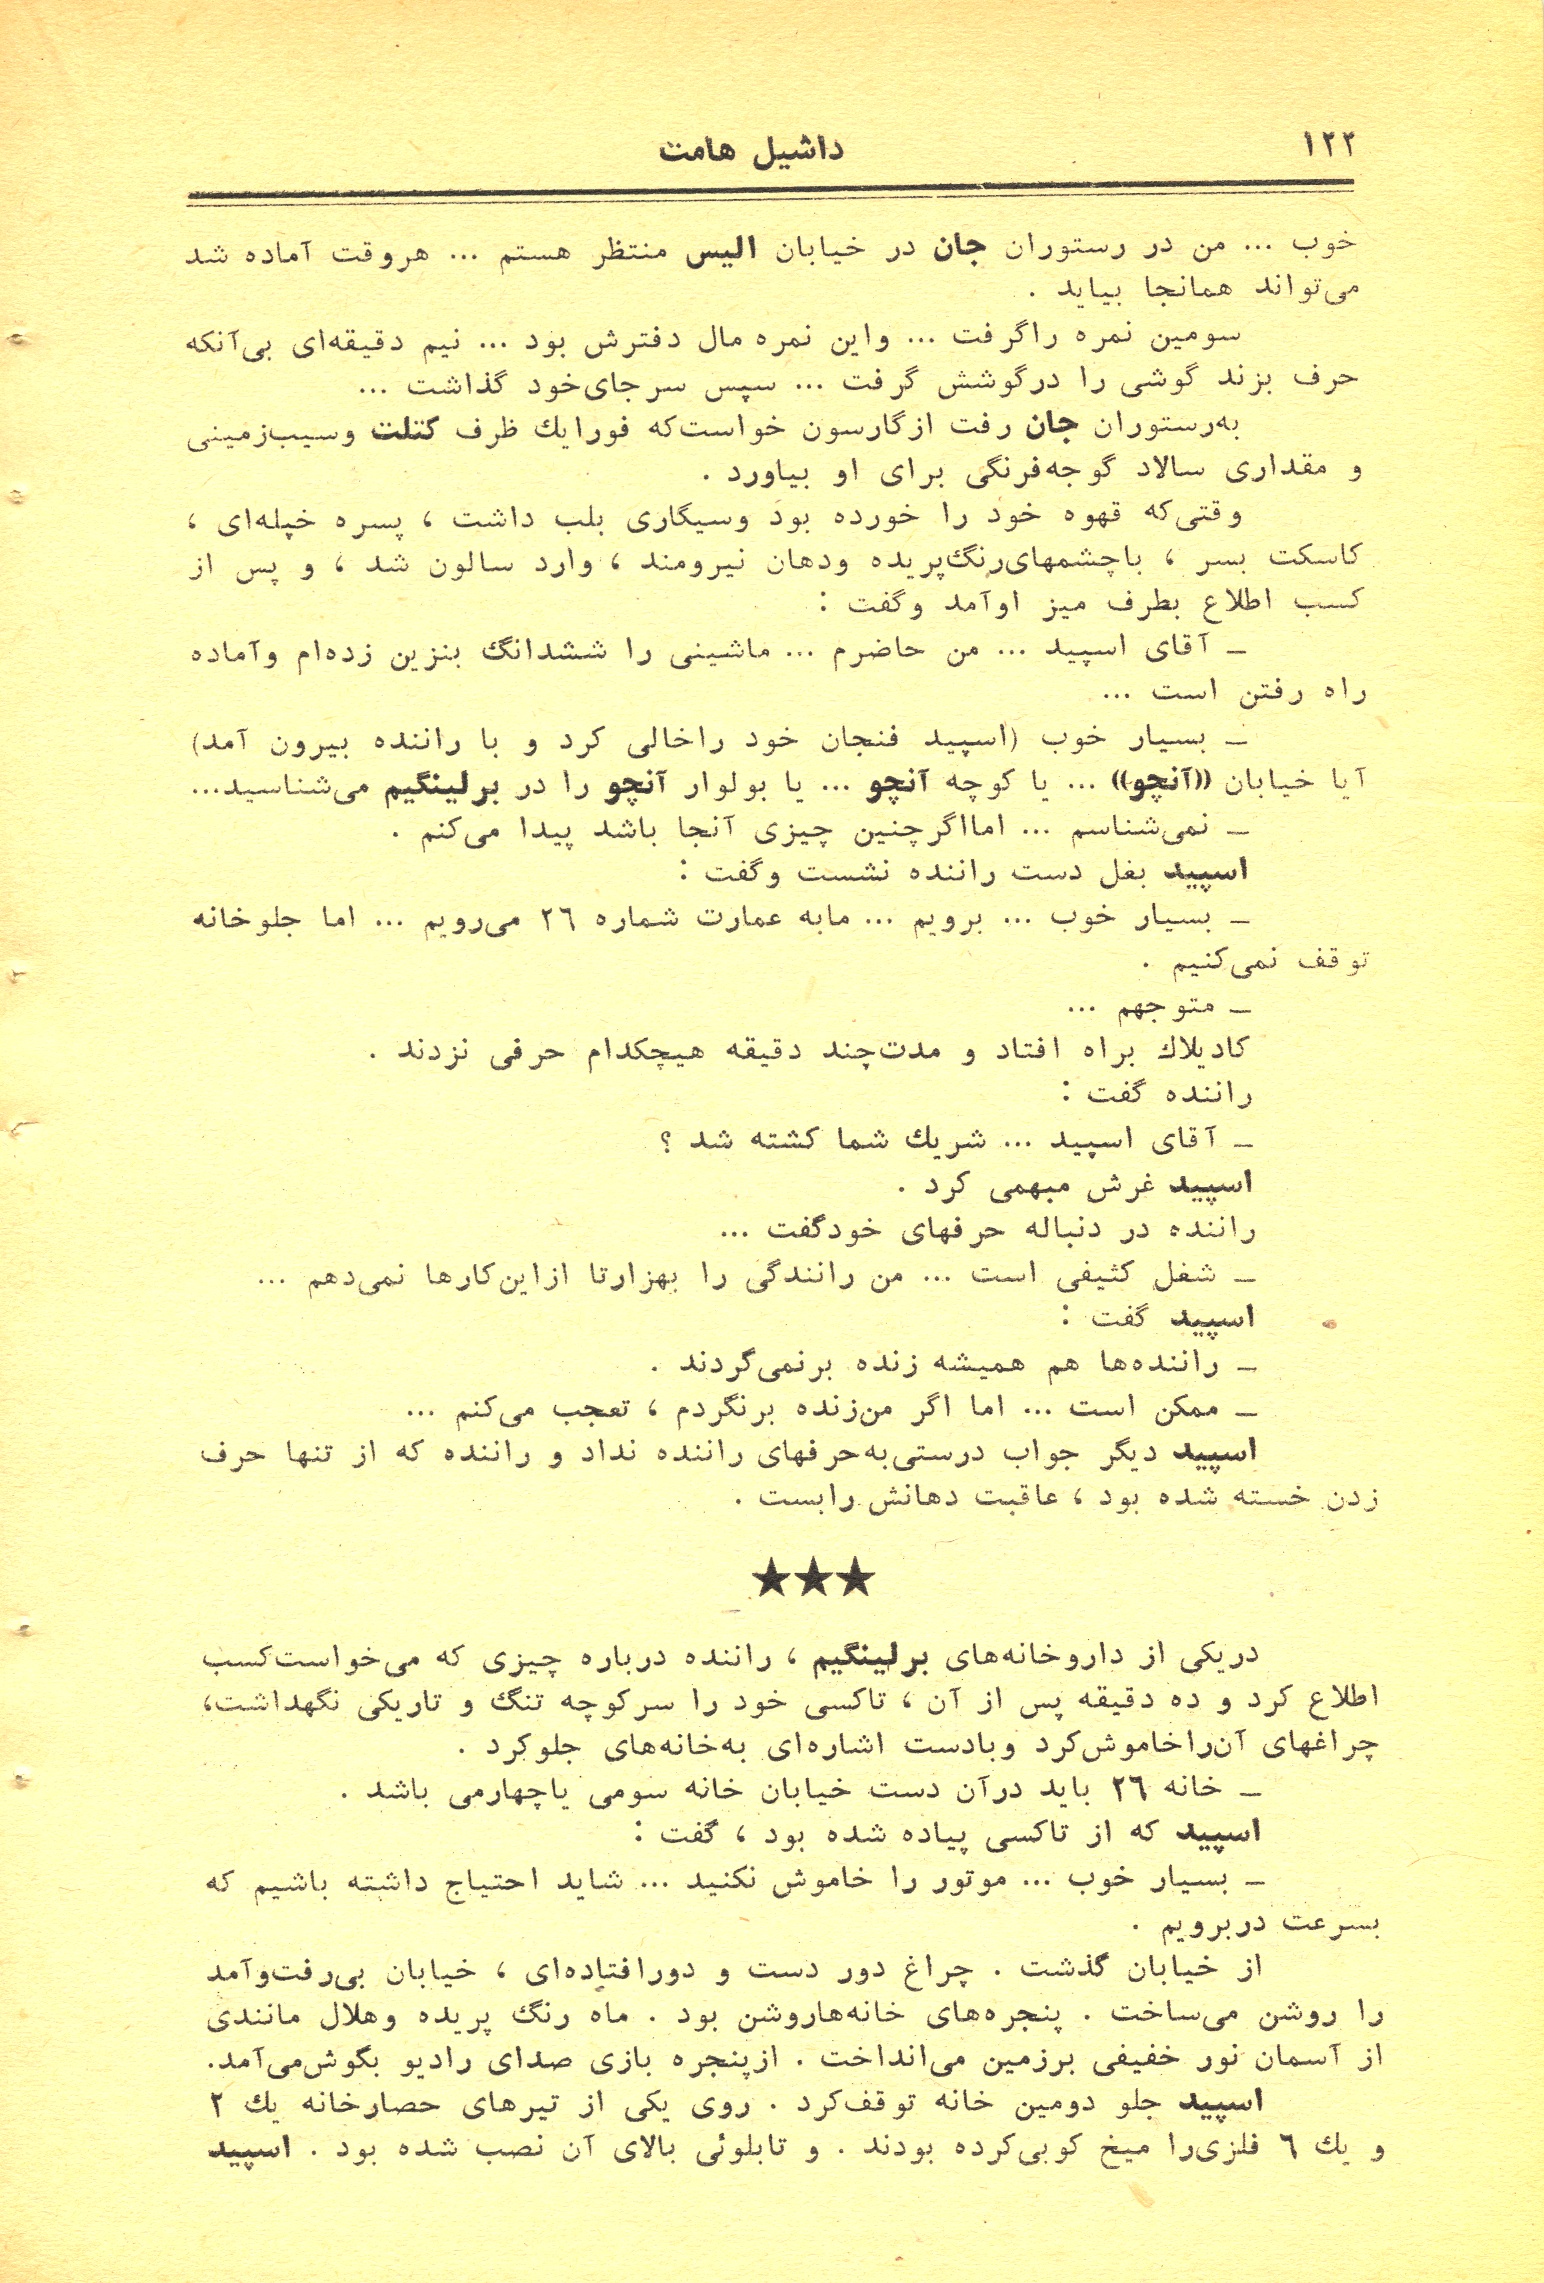 ۱۲۲
داشیل هامت
خوب ... من در رستوران جان در خیابان الیس منتظر هستم ... هروقت آماده شد
می‌تواند همانجا بیاید .
سومین نمره راگرفت ... واین نمره مال دفترش بود ... نیم دقیقه‌ای بی‌آنکه
حرف بزند گوشی را درگوشش گرفت ... سپس سرجای‌خود گذاشت ...
به‌رستوران جان رفت ازگارسون خواست‌که فورایك ظرف کتلت وسیب‌زمینی
و مقداری سالاد گوجه‌فرنگی برای او بیاورد .
وقتی‌که قهوه خود را خورده بود وسیگاری بلب داشت ، پسره خپله‌ای ،
کاسکت بسر ، باچشمهای‌رنگ‌پریده ودهان نیرومند ، وارد سالون شد ، و پس از
کسب اطلاع بطرف میز اوآمد وگفت :
ـ آقای اسپید ... من حاضرم ... ماشینی را ششدانگ بنزین زده‌ام وآماده
راه رفتن است ...
ـ بسیار خوب (اسپید فنجان خود راخالی کرد و با راننده بیرون آمد)
آیا خیابان ((آنچو)) ... یا کوچه آنچو ... یا بولوار آنچو را در برلینگیم می‌شناسید...
ـ نمی‌شناسم ... امااگرچنین چیزی آنجا باشد پیدا می‌کنم .
اسپید بغل دست راننده نشست وگفت :
ـ بسیار خوب ... برویم ... مابه عمارت شماره ۲۶ می‌رویم ... اما جلوخانه
توقف نمی‌کنیم .
ـ متوجهم ...
کادیلاك براه افتاد و مدت‌چند دقیقه هیچکدام حرفی نزدند .
راننده گفت :
ـ آقای اسپید ... شریك شما کشته شد ؟
اسپید غرش مبهمی کرد .
راننده در دنباله حرفهای خودگفت ...
ـ شغل کثیفی است ... من رانندگی را بهزارتا ازاین‌کارها نمی‌دهم ...
اسپید گفت :
ـ راننده‌ها هم همیشه زنده برنمی‌گردند .
ـ ممکن است ... اما اگر من‌زنده برنگردم ، تعجب می‌کنم ...
اسپید دیگر جواب درستی‌به‌حرفهای راننده نداد و راننده که از تنها حرف
زدن خسته شده بود ، عاقبت دهانش رابست .
★★★
دریکی از داروخانه‌های برلینگیم ، راننده درباره چیزی که می‌خواست‌کسب
اطلاع کرد و ده دقیقه پس از آن ، تاکسی خود را سرکوچه تنگ و تاریکی نگهداشت،
چراغهای آن‌راخاموش‌کرد وبادست اشاره‌ای به‌خانه‌های جلوکرد .
ـ خانه ۲۶ باید درآن دست خیابان خانه سومی یاچهارمی باشد .
اسپید که از تاکسی پیاده شده بود ، گفت :
ـ بسیار خوب ... موتور را خاموش نکنید ... شاید احتیاج داشته باشیم که
بسرعت دربرویم .
از خیابان گذشت . چراغ دور دست و دورافتاده‌ای ، خیابان بی‌رفت‌وآمد
را روشن می‌ساخت . پنجره‌های خانه‌هاروشن بود . ماه رنگ پریده وهلال مانندی
از آسمان نور خفیفی برزمین می‌انداخت . ازپنجره بازی صدای رادیو بگوش‌می‌آمد.
اسپید جلو دومین خانه توقف‌کرد . روی یکی از تیرهای حصارخانه یك ۲
و یك ۶ فلزی‌را میخ کوبی‌کرده بودند . و تابلوئی بالای آن نصب شده بود . اسپید